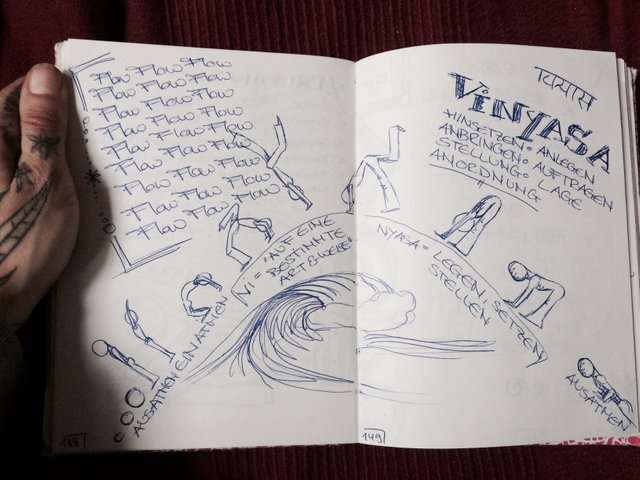 Flow Flow Flow
Flow Flow Flow
Flow Flow Flow
Flow Flow Flow
Flow Flow Flow
Flow Flow Flow
Flow Flow Flow
Flow Flow Flow
Vi = "AUF EINE
BESTIMMTE
ART & WEISE"
AUSATMEN EINATMEN
148
विन्यास
VINYASA
HINSETZEN • ANLEGEN
ANBRINGEN • AUFTRAGEN
STELLUNG • LAGE
ANORDNUNG
NYASA = LEGEN, SETZEN
STELLEN
AUSATMEN
149